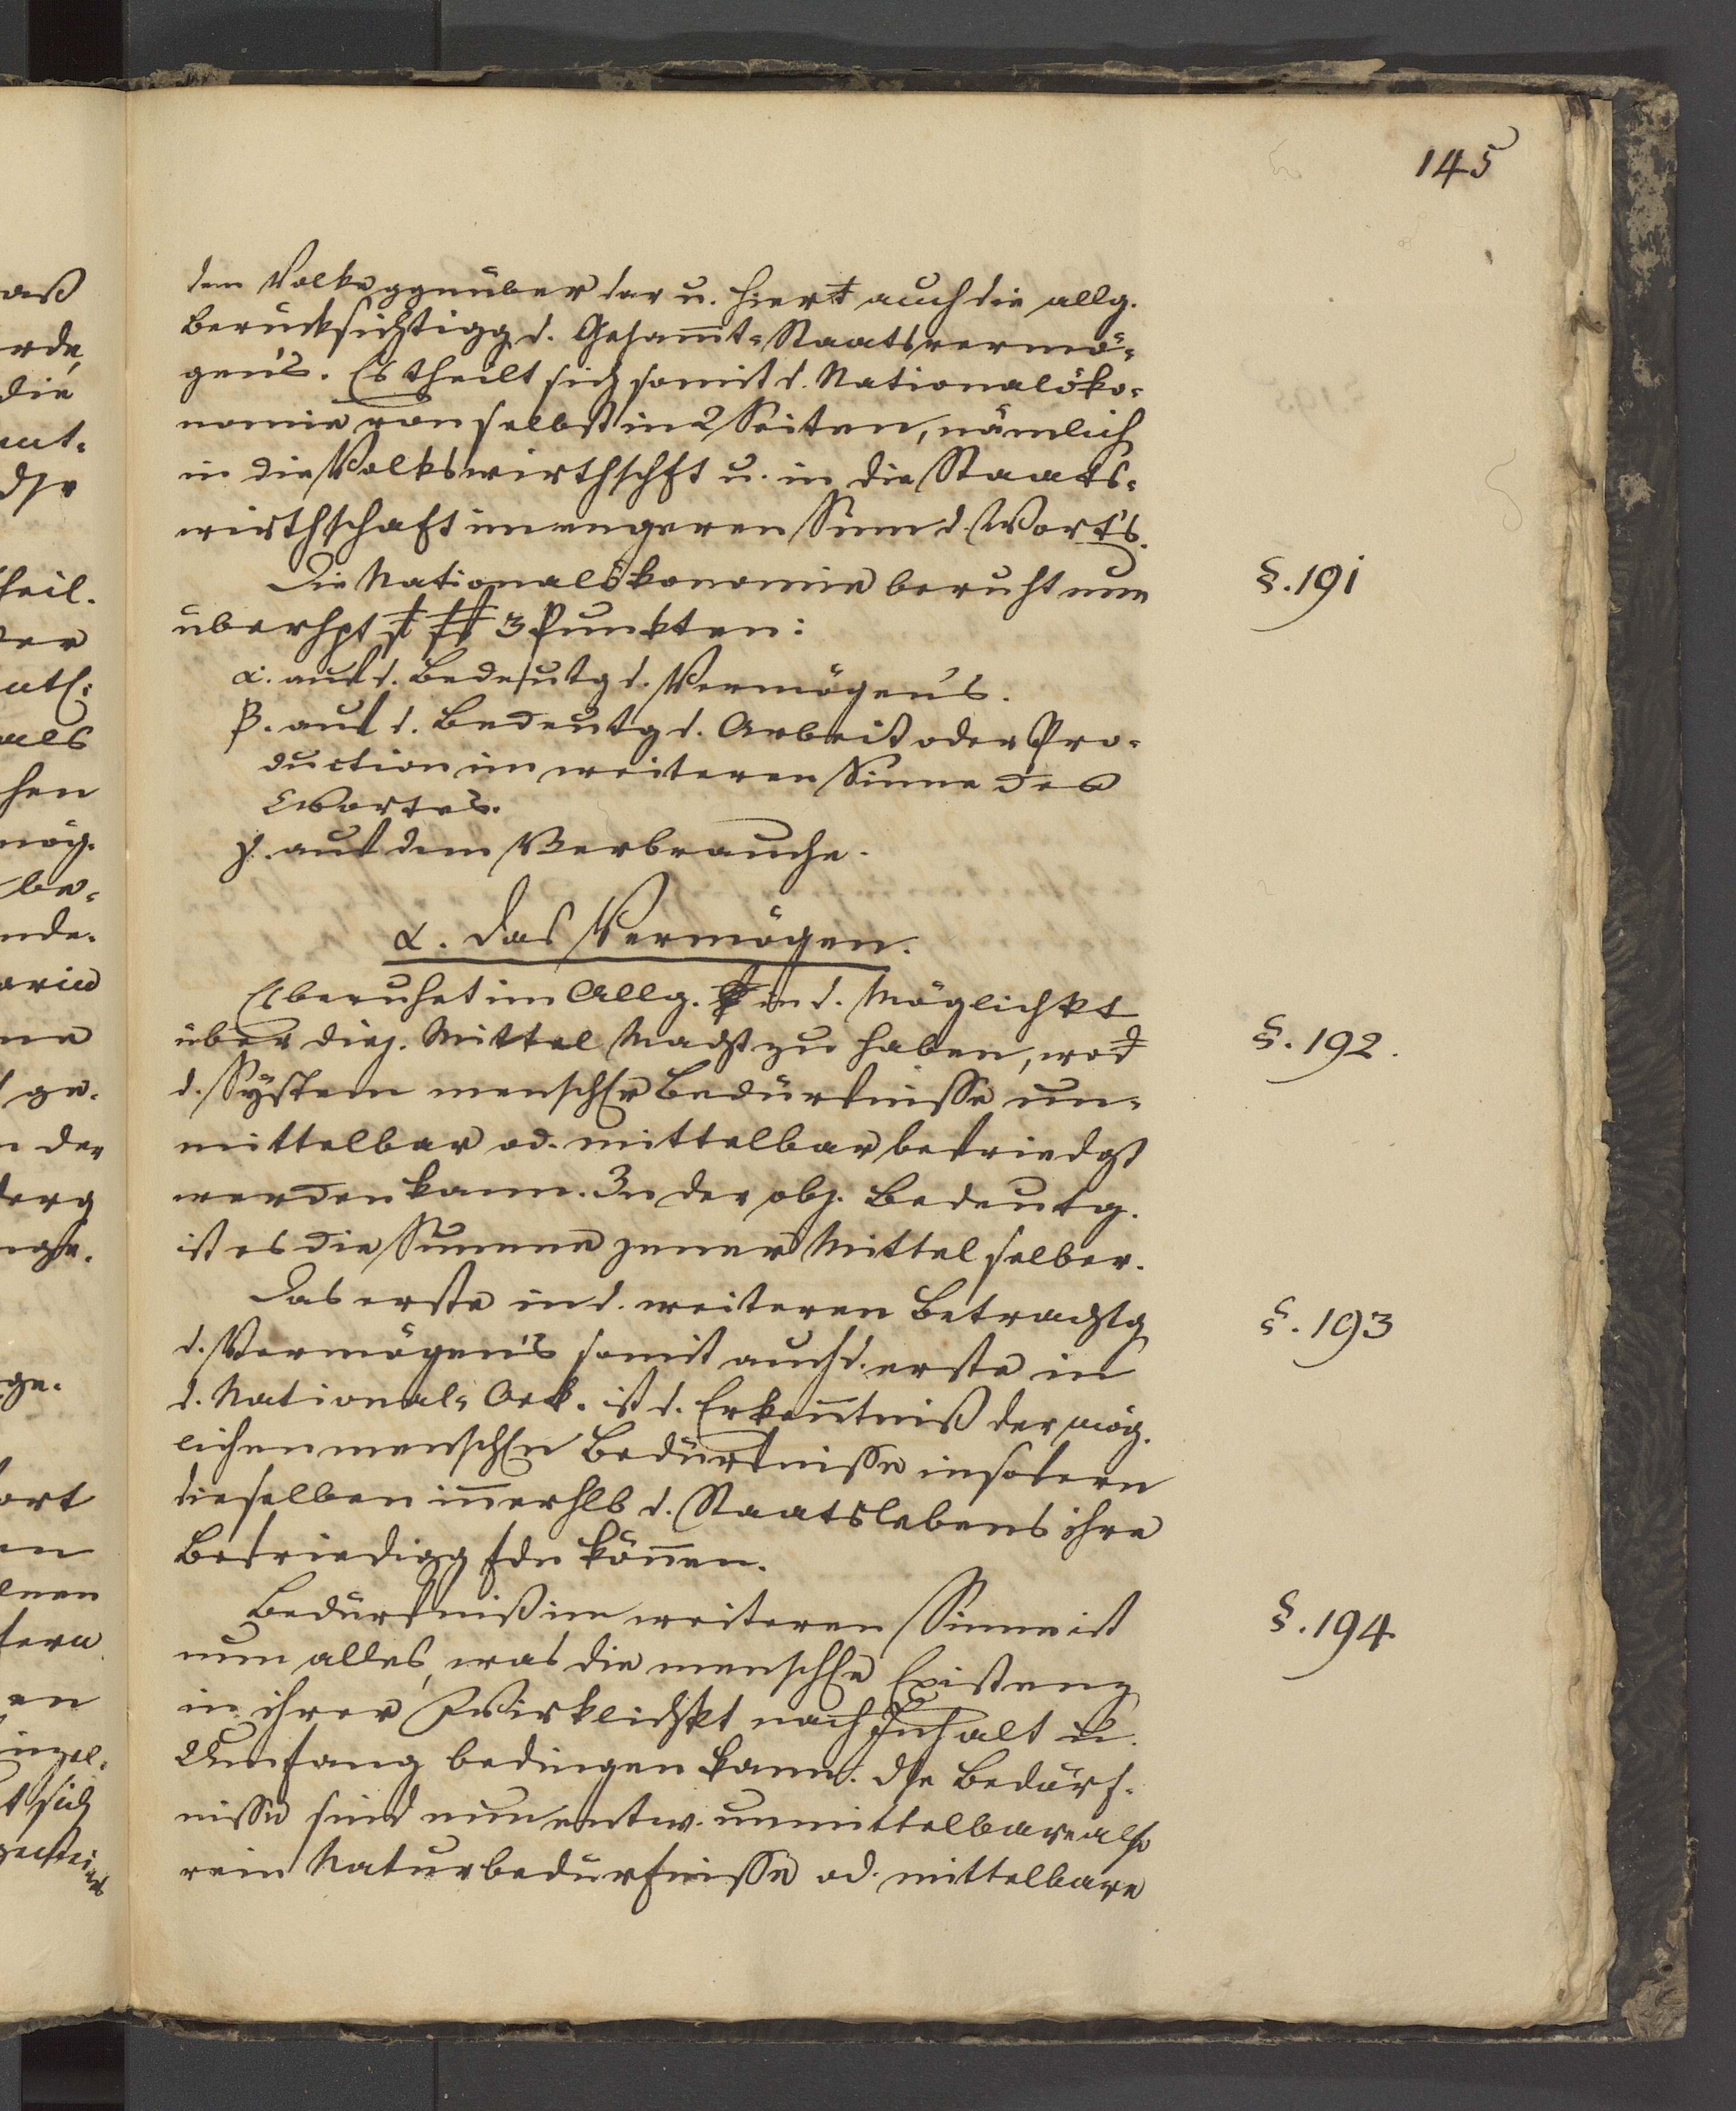 145
dem Volke ggnüber dar u. hiert auch die allg.
Berücksichtigg d. Gesam̅t-Staatsvermö-
gen's. Es theilt sich somit d. Nationalöko-
nomie von selbst in 2 Seiten, nämlich
in die Volkswirthschft u. in die Staats-
wirthschaft im engeren Sinn d. Wort's.
Die Nationalökonomie beruht nun
§. 191
überhpt 3 Punkten:
α. auf d. Bedeutg d. Vermögen's.
β. auf d. Bedeutg d. Arbeit oder Pro-
duction im weiteren Sinne des
Wortes.
γ. auf dem Verbrauche.
α. Das Vermögen.
Es beruhet im Allg. in d. Möglichkt
über diej. Mittel Macht zu haben, wod
§. 192.
d. System menschlr Bedürfnisse un-
mittelbar od. mittelbar befriedgt
werden kann. In der obj. Bedeutg.
ist es die Summe jener Mittel selber.
Das erste in d. weiteren Betrachtg
§. 193
d. Vermögen's somit auch d. erste in
d. National-Oek. ist d. Erken̅tniß der mög-
lichen menschln Bedürfnisse insofern
dieselben in̅erhlb d. Staatslebens ihre
Befriedigg fdn kön̅en.
Bedürfniß im weiteren Sinne ist
§. 194
nun alles, was die menschle Existenz
in ihrer Wirklichkt nach Inhalt u.
Umfang bedingen kann. Dse Bedürf-
nisse sind nun entw. unmittelbare also
rein Naturbedürfnisse od. mittelbare